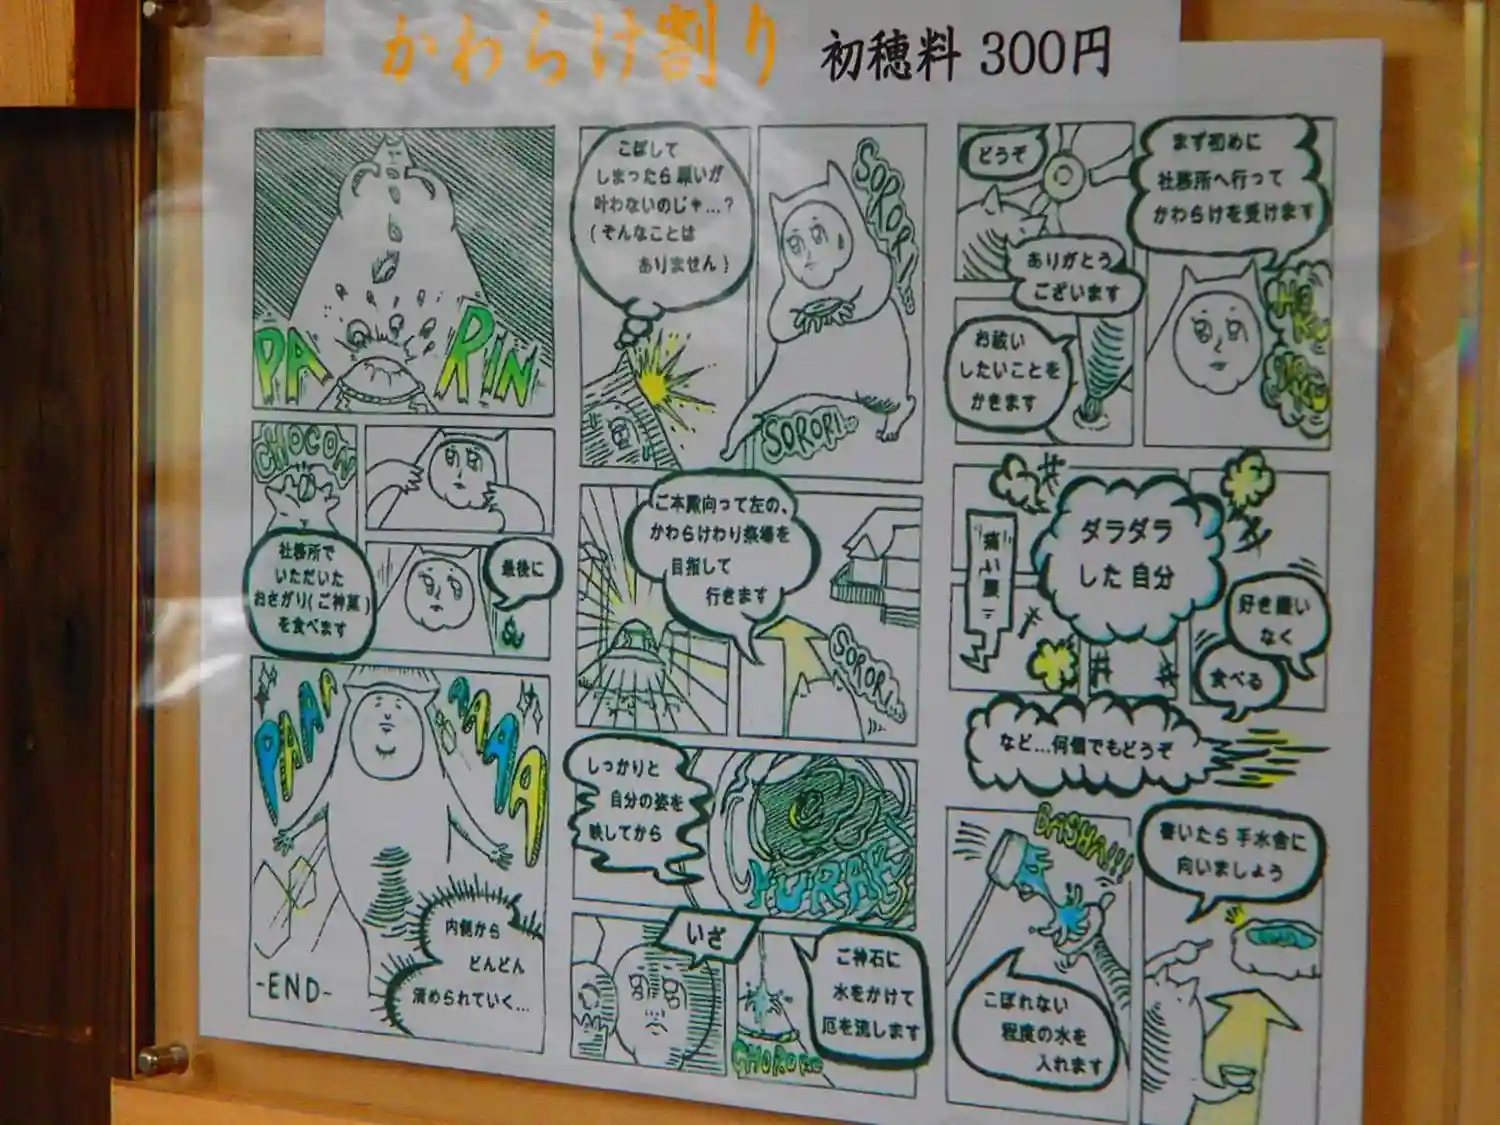 かわらけ割り 初穂料 300円
まず初めに
社務所へ行って
かわらけを受けます
HOKU
HOKU
どうぞ
ありがとう
ございます
お祓い
したいことを
かきます
ダラダラ
した自分
痛い腰
好き嫌い
なく
食べる
など…何個でもどうぞ
書いたら手水舎に
向いましょう
BASHA!!!
こぼれない
程度の水を
入れます
こぼして
しまったら願いが
叶わないのじゃ…?
(そんなことは
ありません)
SORORI
SORORI
ご本殿向って左の、
かわらけわり祭場を
目指して
行きます
SORORI
しっかりと
自分の姿を
映してから
YURA
いざ
ご神石に
水をかけて
厄を流します
CHORORO
PA
RIN
最後に
CHOCON
社務所で
いただいた
おさがり(ご神菓)
を食べます
PAAA
AAAA
内側から
どんどん
清められていく…
-END-